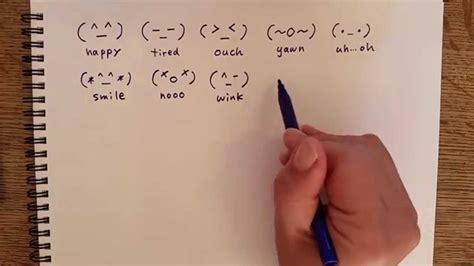 (^_^) (-_-) (>_<) (~o~) (•_•)
happy tired ouch yawn uh...oh
(*^_^*) (x o x) (^_-)
smile nooo wink